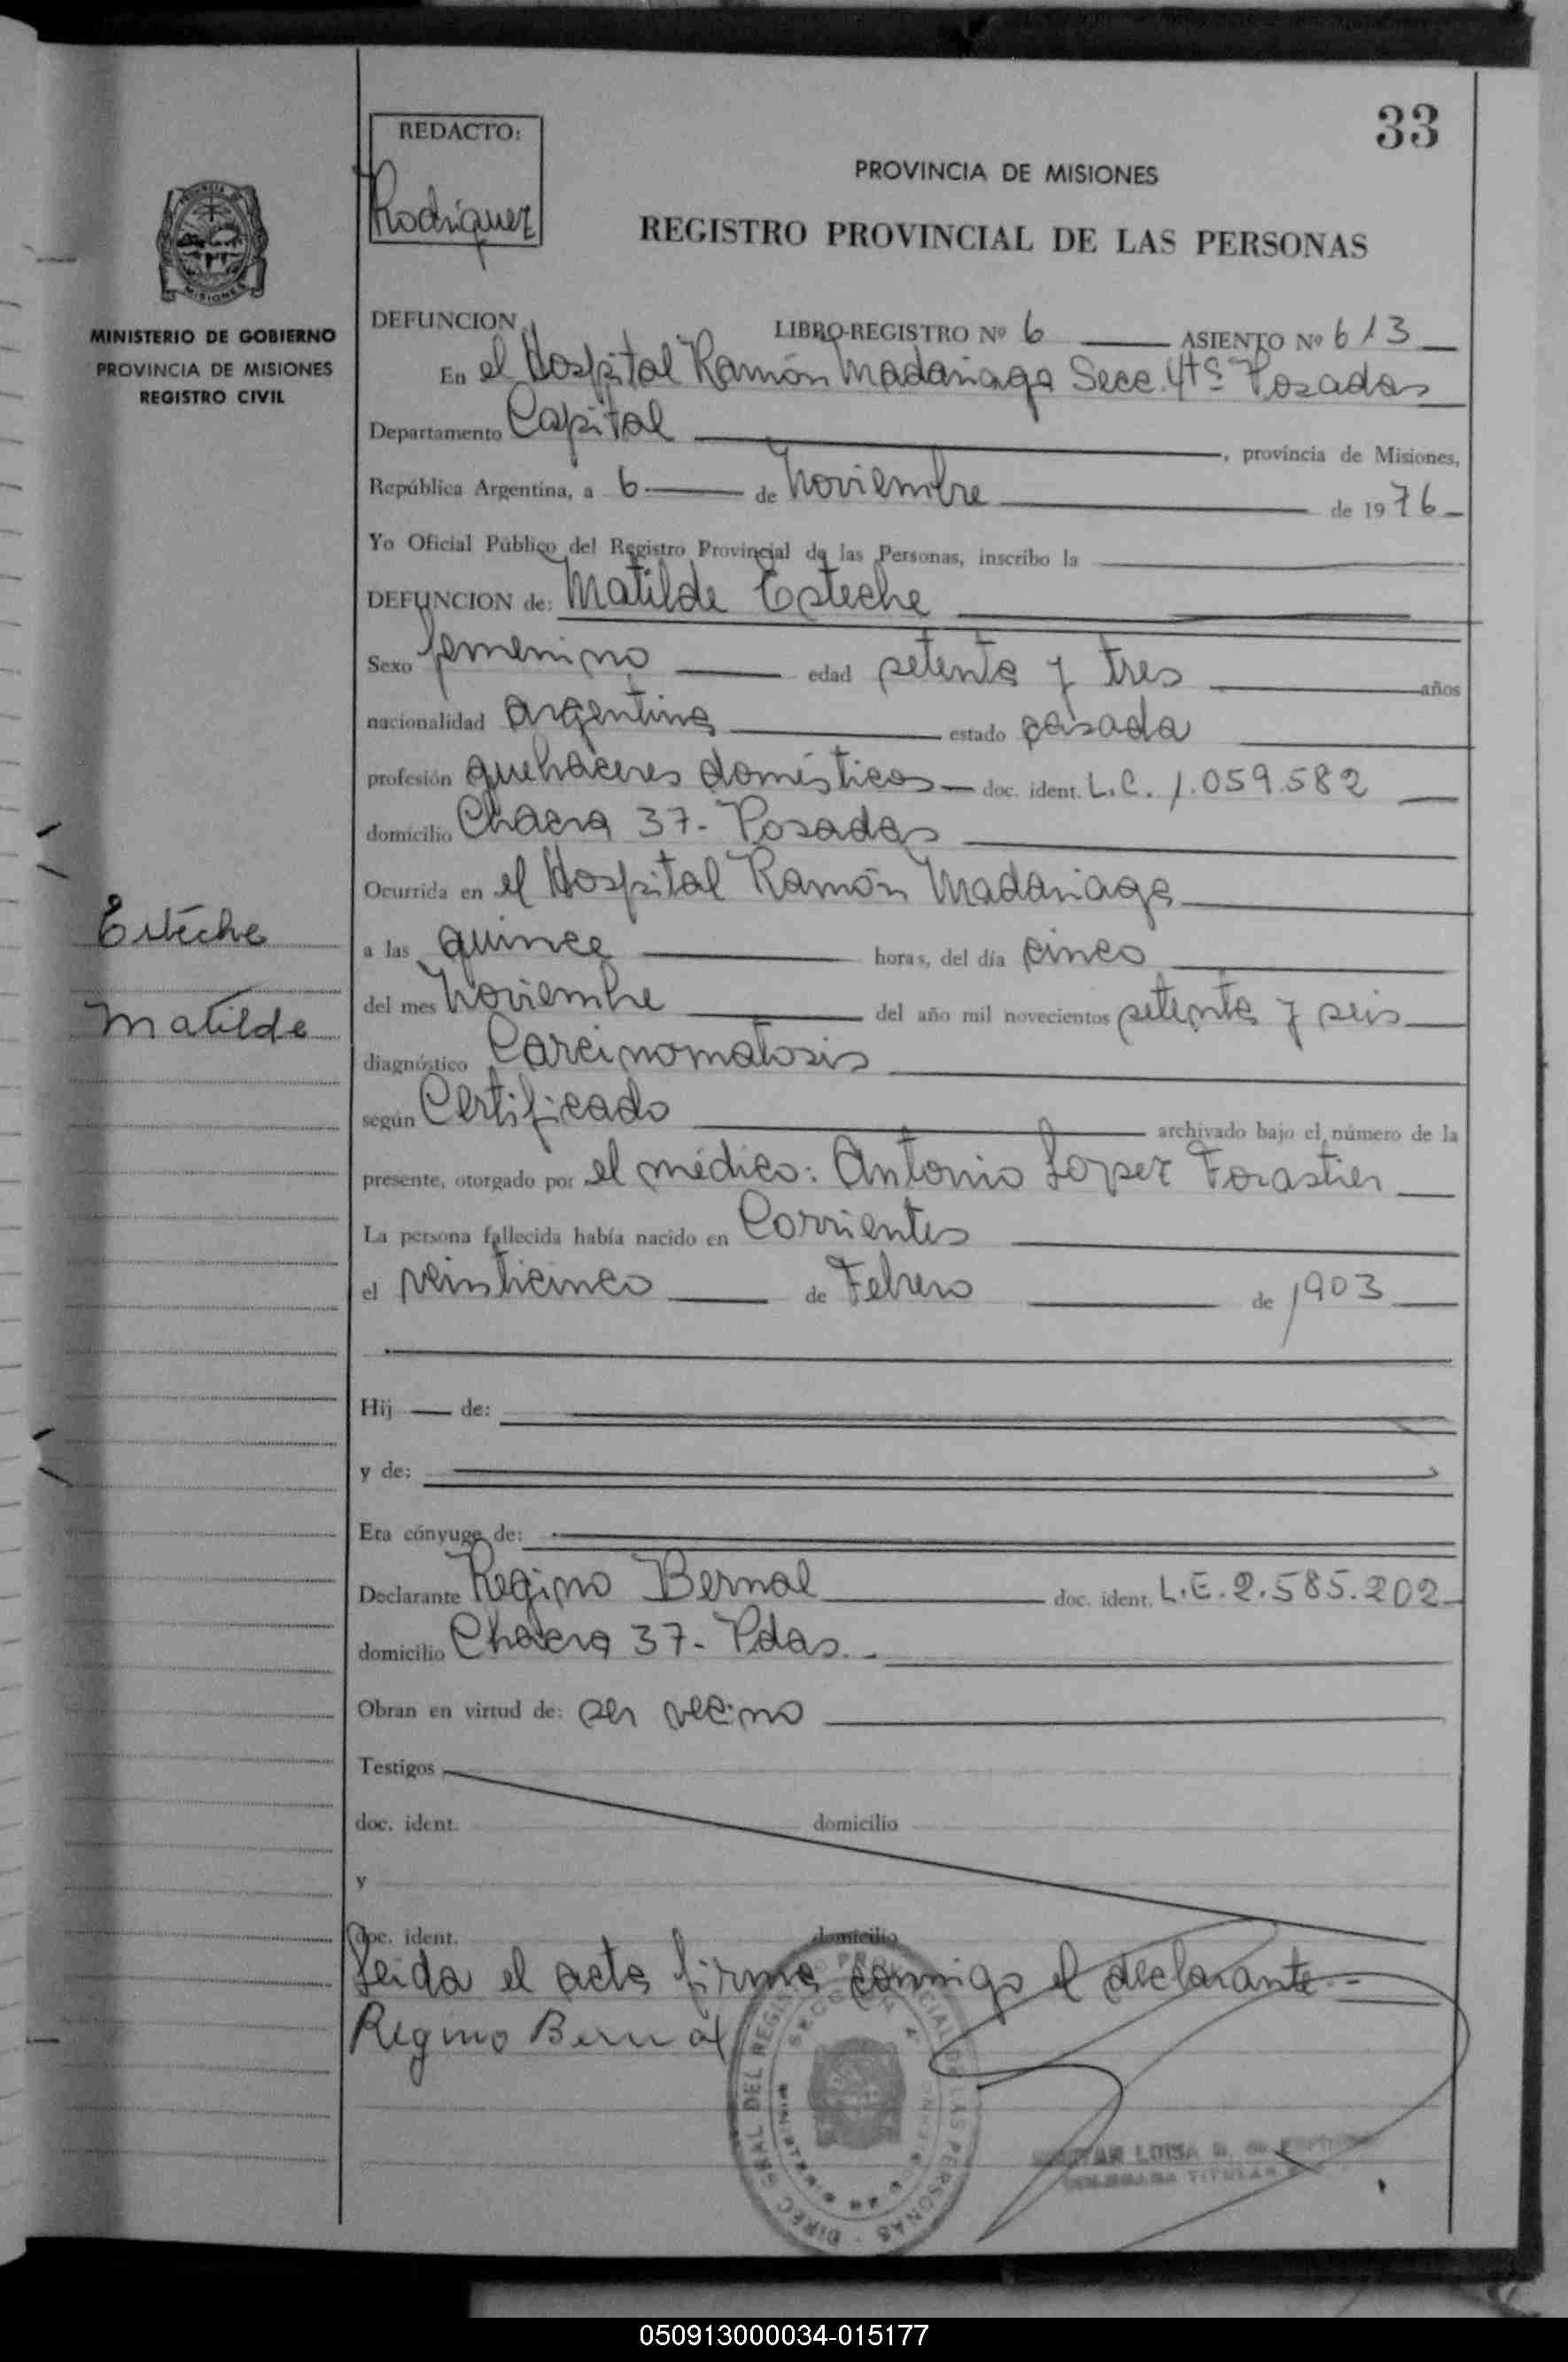 33
REDACTO:
Rodriguez
PROVINCIA DE MISIONES
REGISTRO PROVINCIAL DE LAS PERSONAS
MISIONES
MINISTERIO DE GOBIERNO
PROVINCIA DE MISIONES
REGISTRO CIVIL
DEFUNCION LIBRO-REGISTRO Nº 6 ASIENTO Nº 613
En el Hospital Ramón Madariaga Secc. 4ta Posadas
Departamento Capital, provincia de Misiones,
República Argentina, a 6 de Noviembre de 1976
Yo Oficial Público del Registro Provincial de las Personas, inscribo la
DEFUNCION de: Matilde Esteche
Sexo femenino edad setenta y tres años
nacionalidad argentina estado casada
profesión quehaceres domésticos doc. ident. L.C. 1.059.582
domicilio Chacra 37- Posadas
Ocurrida en el Hospital Ramón Madariaga
Esteche
a las quince horas, del día cinco
Matilde
del mes Noviembre del año mil novecientos setenta y seis
diagnóstico Carcinomatosis
según Certificado archivado bajo el número de la
presente, otorgado por el médico: Antonio Lopez Forastier
La persona fallecida había nacido en Corrientes
el veinticinco de Febrero de 1903
Hij de:
y de:
Era cónyuge de:
Declarante Regino Bernal doc. ident. L.E. 2.585.202
domicilio Chacra 37- Pdas.
Obran en virtud de: ser vecino
Testigos
doc. ident. domicilio
y
doc. ident. domicilio
Leida el acta firma conmigo el declarante.-
Regino Bernal
DIREC. GRAL. DEL REGISTRO PROVINCIAL DE LAS PERSONAS
LUISA
TITULAR
050913000034-015177